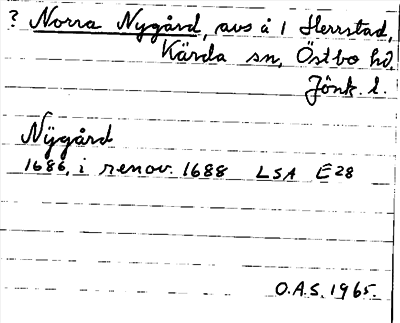 ? Norra Nygård, avs å 1 Herrstad,
Kärda sn, Östbo hd,
Jönk. l.
Nÿgård
1686, i renov. 1688 LSA E28
O.A.S. 1965.